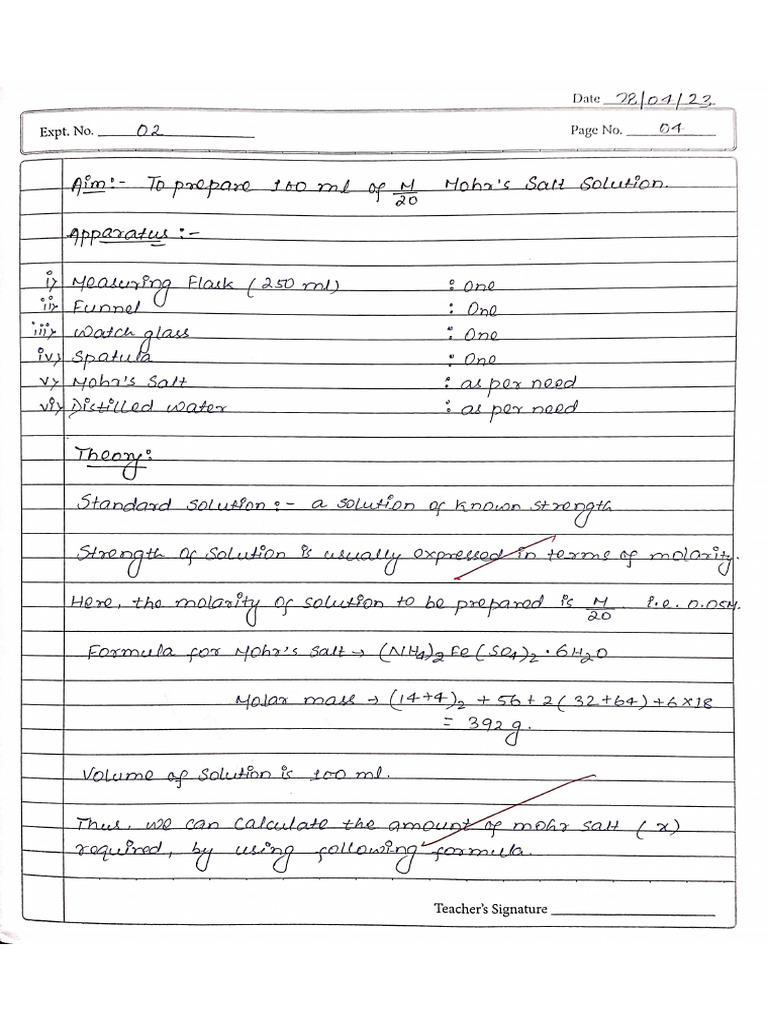 Date 28/04/23
Expt. No. 02 Page No. 04
Aim:- To prepare 100 ml of M/20 Mohr's Salt Solution.
Apparatus:-
i) Measuring Flask (250 ml) : One
ii) Funnel : One
iii) Watch glass : One
iv) Spatula : One
v) Mohr's Salt : as per need
vi) Distilled water : as per need
Theory:
Standard solution:- a solution of known strength
Strength of solution is usually expressed in terms of molarity.
Here, the molarity of solution to be prepared is M/20 i.e. 0.05M.
Formula for Mohr's salt → (NH4)2Fe(SO4)2·6H2O
Molar mass → (14+4)2 + 56 + 2(32+64) + 6×18
= 392g.
Volume of solution is 100 ml.
Thus, we can calculate the amount of mohr salt (x)
required, by using following formula.
Teacher's Signature